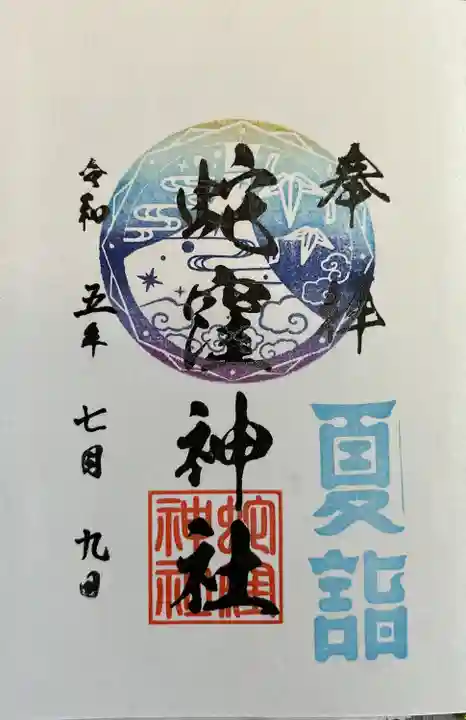 奉拝
夏詣
蛇窪神社
蛇窪神社
令和五年七月九日